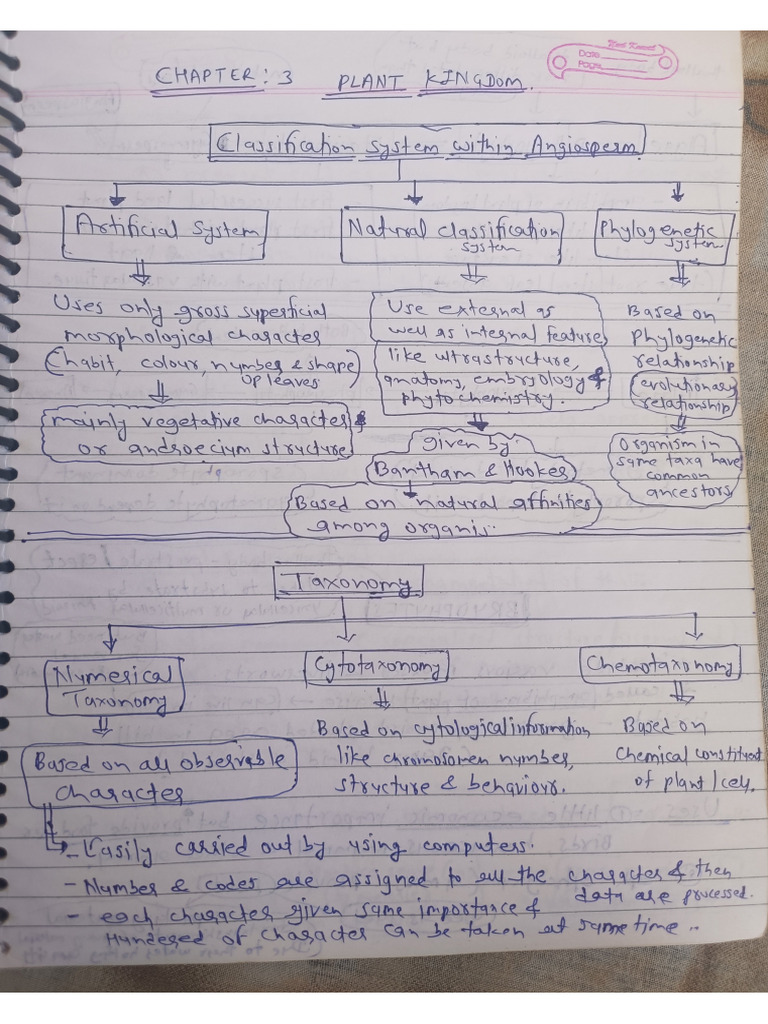 CHAPTER: 3 PLANT KINGDOM.
Date
Page
Classification system within Angiosperm
Artificial System
Natural classification
system
Phylogenetic
system
Uses only gross superficial
morphological character
(habit, colour, number & shape
OP leaves
mainly vegetative character
or androecium structure
Use external as
well as internal feature
like ultrastructure,
anatomy, embryology &
phytochemistry.
given by:
Bantham & Hooker
Based on natural affinities
among organis.
Based on
Phylogenetic
relationship
(evolutionary
relationship)
Organism in
same taxa have
common
ancestors
Taxonomy
Numerical
Taxonomy
Cytotaxonomy
Chemotaxonomy
Based on all observable
character
Based on cytological information
like chromosomen number,
structure & behaviour.
Based on
Chemical constituent
of plant/cell.
- Easily carried out by using computers.
- Number & codes are assigned to all the character & then
data are processed.
- each character given same importance &
Hundered of character can be taken at same time ..